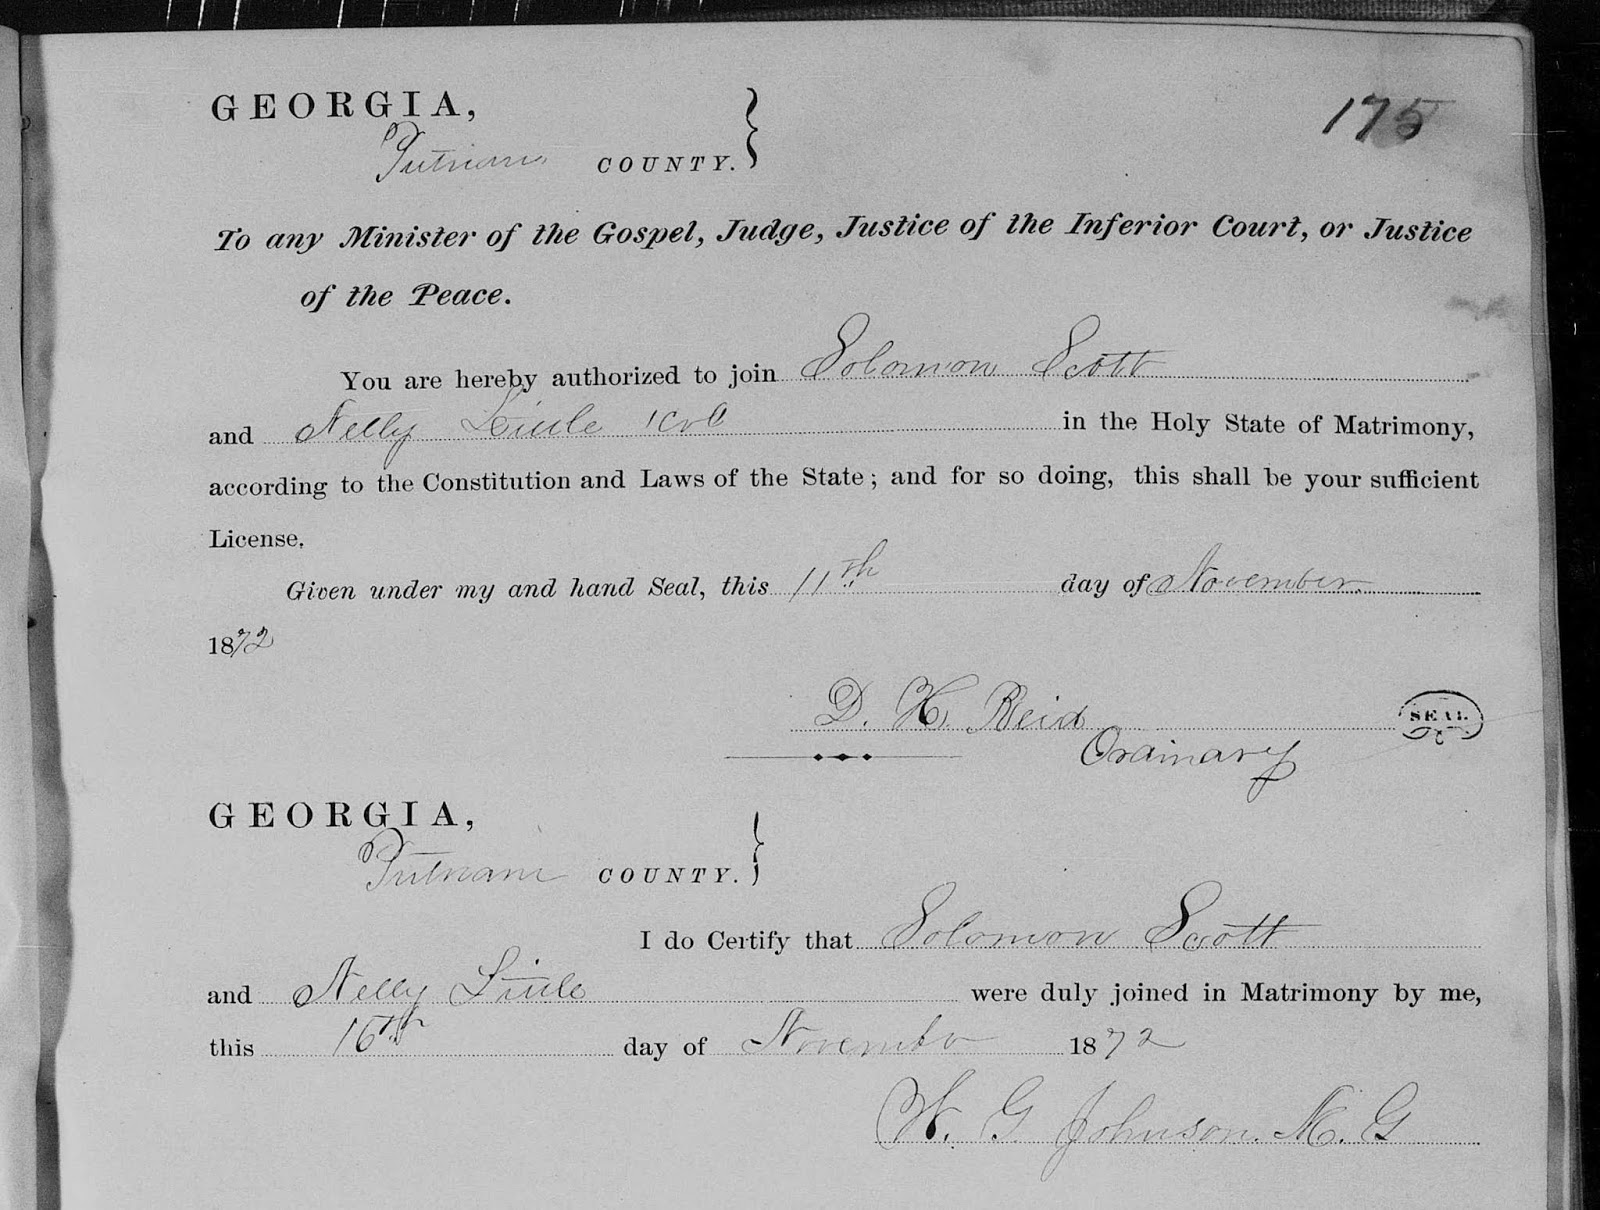 175
GEORGIA,
Putnam COUNTY.
To any Minister of the Gospel, Judge, Justice of the Inferior Court, or Justice
of the Peace.
You are hereby authorized to join Solomon Scott
and Nelly Little Col in the Holy State of Matrimony,
according to the Constitution and Laws of the State; and for so doing, this shall be your sufficient
License.
Given under my and hand Seal, this 11th day of November
1872
D. H. Reid SEAL
Ordinary
GEORGIA,
Putnam COUNTY.
I do Certify that Solomon Scott
and Nelly Little were duly joined in Matrimony by me,
this 16th day of November 1872
W. G Johnson. M. G